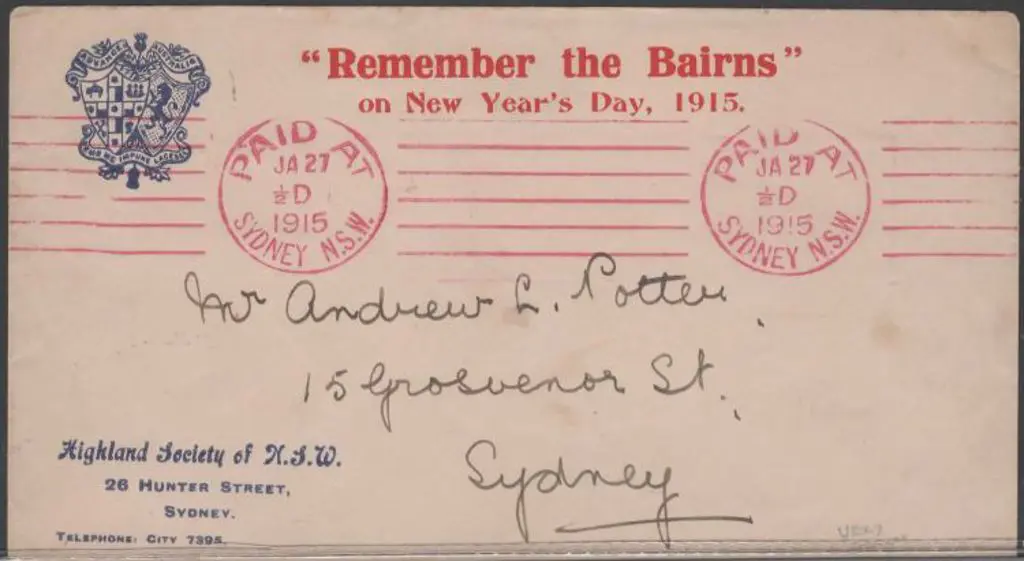 ADVANCE AUSTRALIA
NEMO ME IMPUNE LACESSIT
"Remember the Bairns"
on New Year's Day, 1915.
PAID AT
JA 27
½D
1915
SYDNEY N.S.W.
PAID AT
JA 27
½D
1915
SYDNEY N.S.W.
Mr Andrew L. Potter,
15 Grosvenor St.,
Sydney
Highland Society of N.S.W.
26 HUNTER STREET,
SYDNEY.
TELEPHONE: CITY 7395.